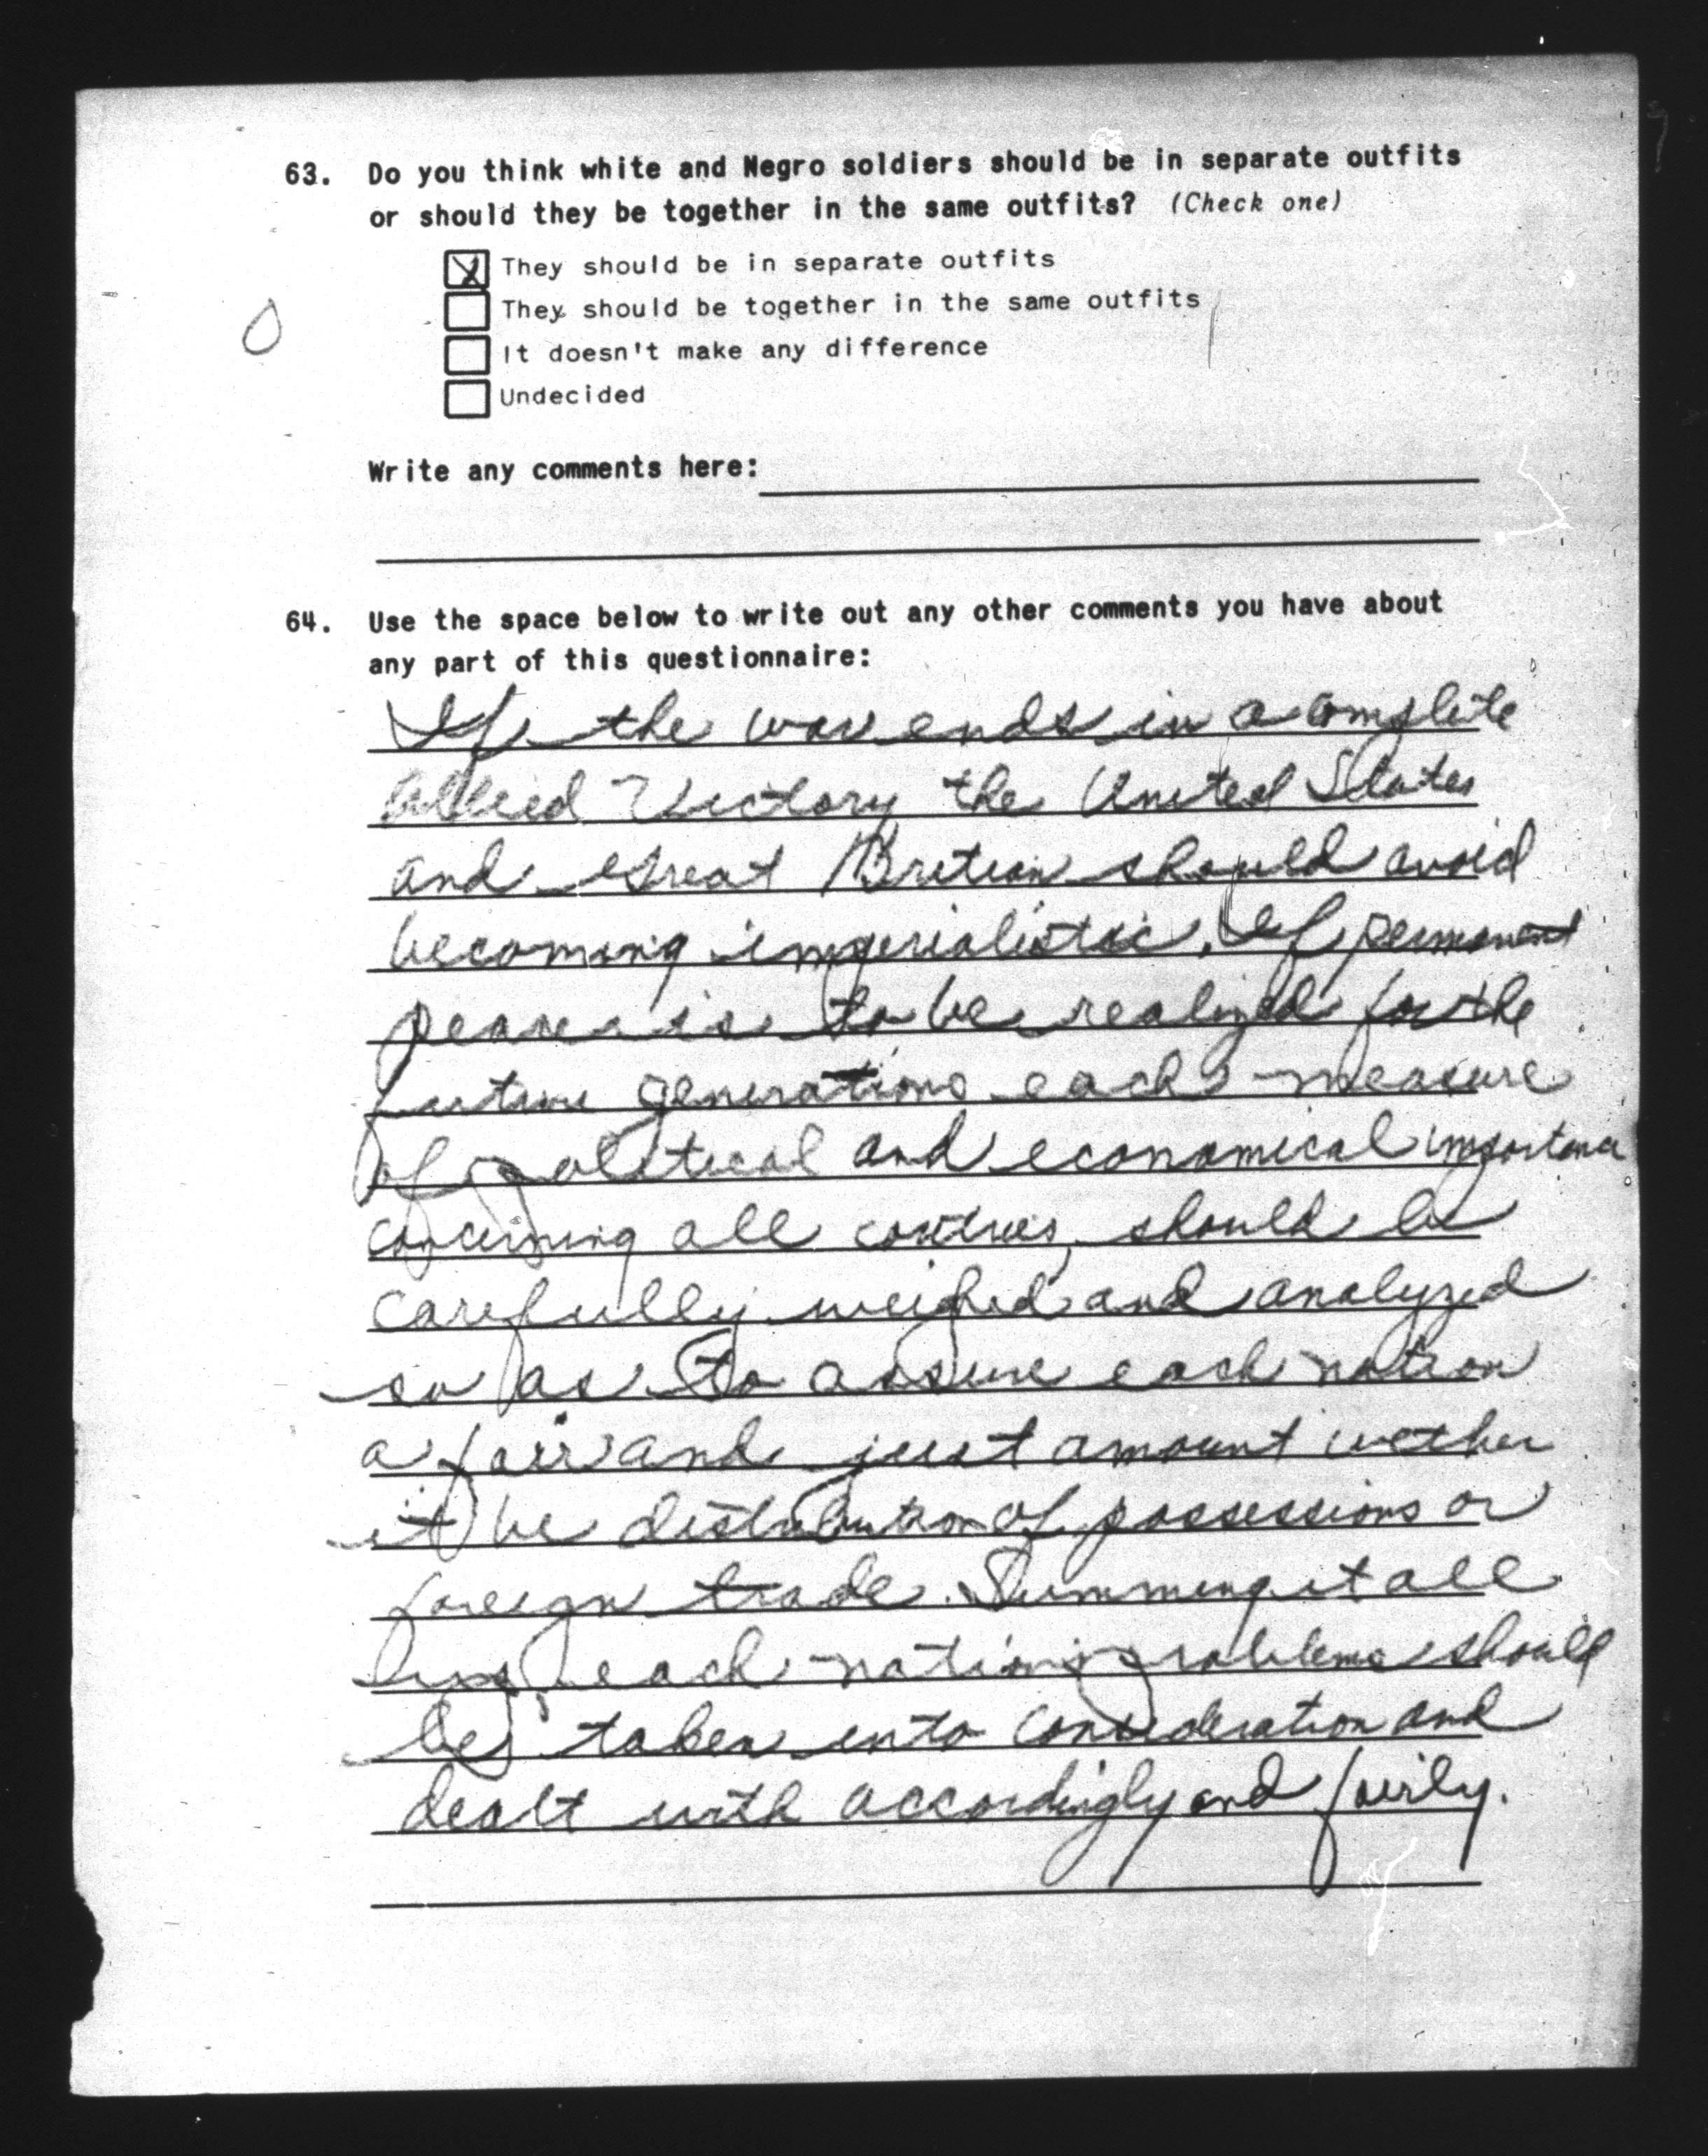 63. Do you think white and Negro soldiers should be in separate outfits
or should they be together in the same outfits? (Check one)
They should be in separate outfits
They should be together in the same outfits
It doesn't make any difference
Undecided
0
Write any comments here:
64. Use the space below to write out any other comments you have about
any part of this questionnaire:
If the war ends in a complete
allied Victory the United States
and Great Britian should avoid
becoming imperialistic. If permanent
peace is to be realized for the
future generations each measure
of political and economical importance
concerning all contries, should be
carefully weighed and analyzed
so as to assure each nation
a fair and just amount wether
it be distribution of possessions or
foreign trade. Summing it all
up each nations problems should
be taken into consideration and
dealt with accordingly and fairly.